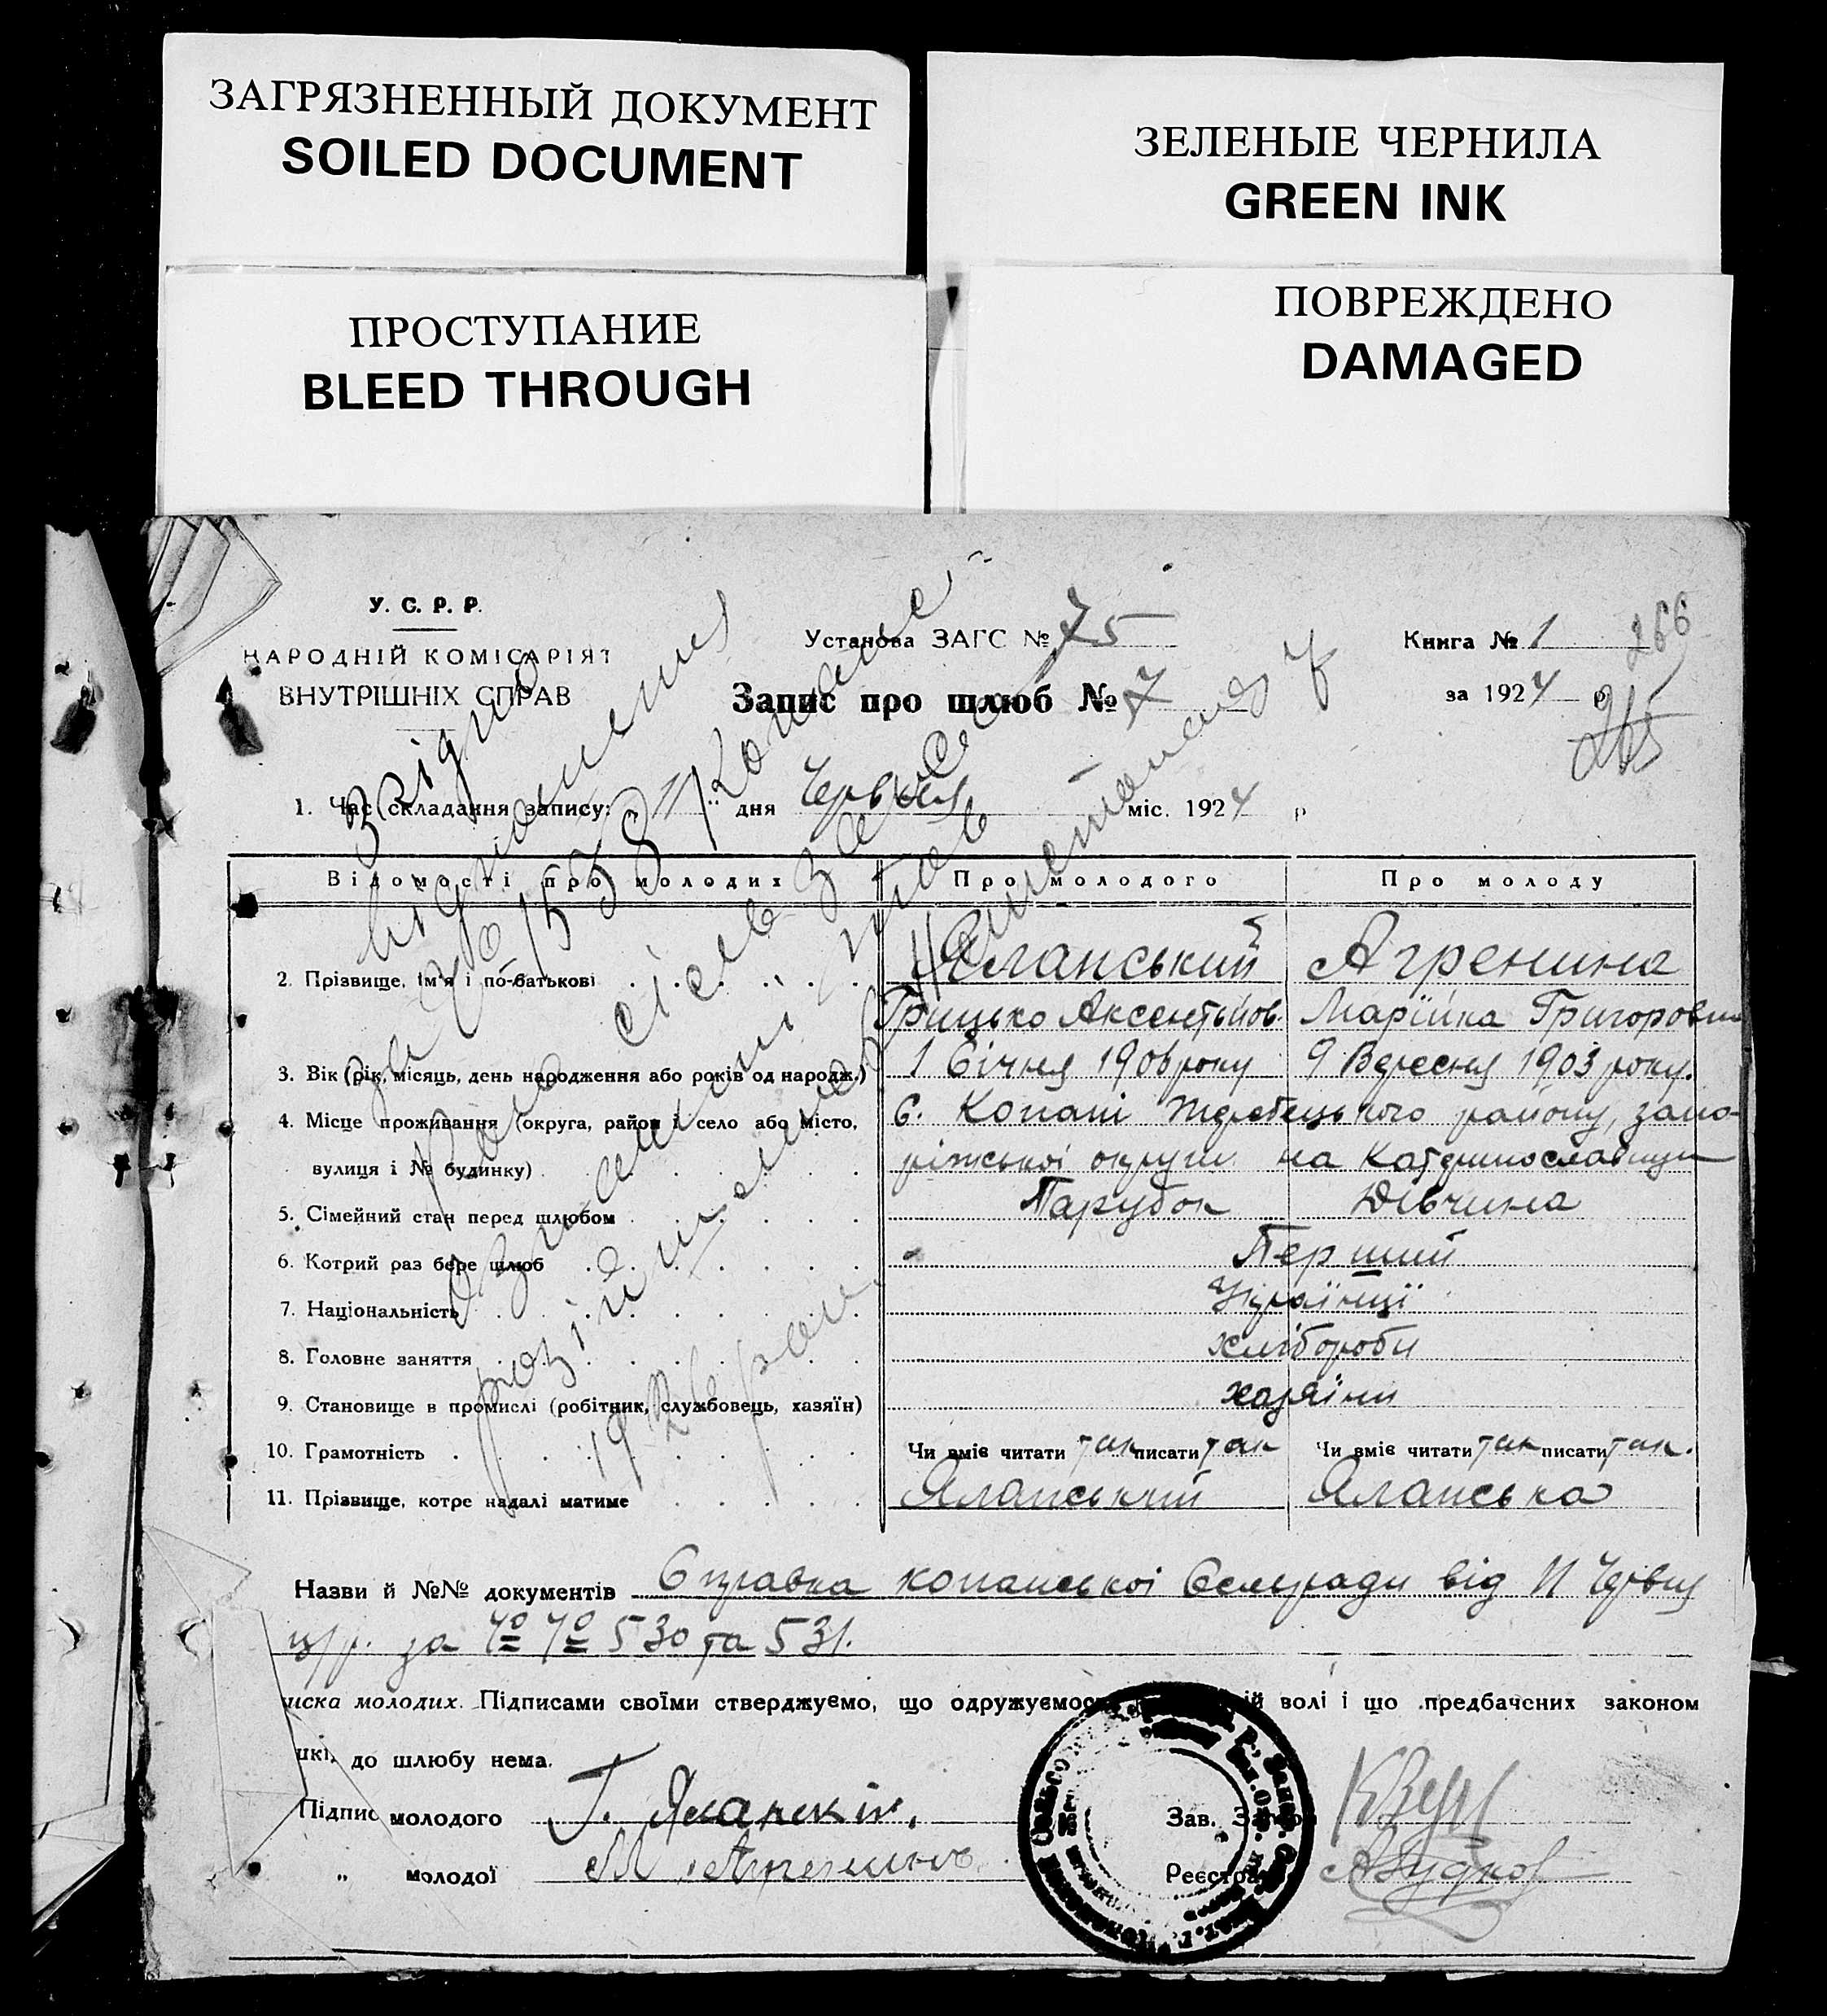 ЗАГРЯЗНЕННЫЙ ДОКУМЕНТ
SOILED DOCUMENT
ЗЕЛЕНЫЕ ЧЕРНИЛА
GREEN INK
ПРОСТУПАНИЕ
BLEED THROUGH
ПОВРЕЖДЕНО
DAMAGED
У. С. Р. Р.
НАРОДНІЙ КОМІСАРІЯТ
ВНУТРІШНІХ СПРАВ
Установа ЗАГС № 75
Запис про шлюб № 7
Книга № 1
266
за 1924 р
265
1. Час складання запису: 11 " дня Червня міс. 1924 р
Відомості про молодих
Про молодого
Про молоду
2. Прізвище, ім'я і по-батькові
Яланський
Агренина
Грицько Аксентьйов.
Марійка Григоровн
3. Вік (рік, місяць, день народження або років од народж.)
1 Січня 1906 року
9 Вересня 1903 року.
4. Місце проживання (округа, район і село або місто,
с. Копані Жеребецького району, запо-
вулиця і № будинку)
ріжської округи на Катеринославщи
5. Сімейний стан перед шлюбом
Парубок
Дівчина
6. Котрий раз бере шлюб
Перший
7. Національність
Українці
8. Головне заняття
хлібороби
9. Становище в промислі (робітник, службовець, хазяїн)
хазяїни
10. Грамотність
Чи вміє читати так писати так
Чи вміє читати так писати так.
11. Прізвище, котре надалі матиме
Яланський
Яланська
Згідно
відношення
за № 1538 Копанс
1926 року
Назви й №№ документів Справка копанської Сельради від 11 Червня
ц/р. за №№ 530 та 531.
иска молодих. Підписами своїми стверджуємо, що одружуємось волі і що предбачених законом
до шлюбу нема.
Підпис молодого Г. Яланскій.
Зав. 
" молодої М. Агренина
Реєстра